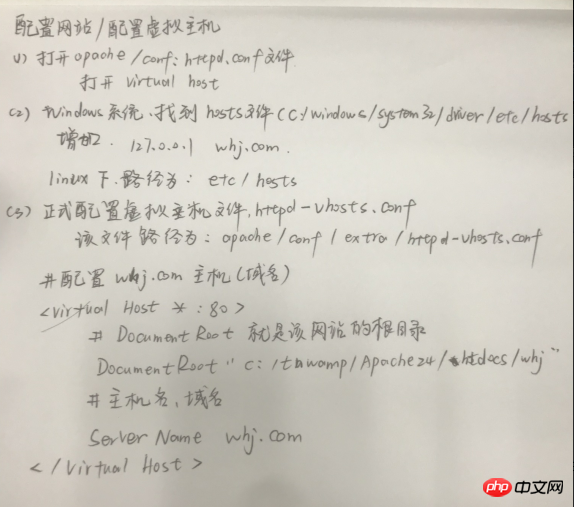 配置网站/配置虚拟主机
(1) 打开 apache/conf: httpd.conf 文件
打开 virtual host
(2) Windows 系统、找到 hosts文件 (C:/windows/system32/driver/etc/hosts
增加 127.0.0.1 whj.com.
linux 下.路径为: etc/hosts
(3) 正式配置虚拟主机文件, httpd-vhosts.conf
该文件路径为: apache/conf/extra/httpd-vhosts.conf
#配置 whj.com 主机(域名)
<virtual Host *:80>
# Document Root 就是该网站的根目录
Document Root "c:/ /Apache24/htdocs/whj"
#主机名、域名
Server Name whj.com
</Virtual Host>
php 中文网